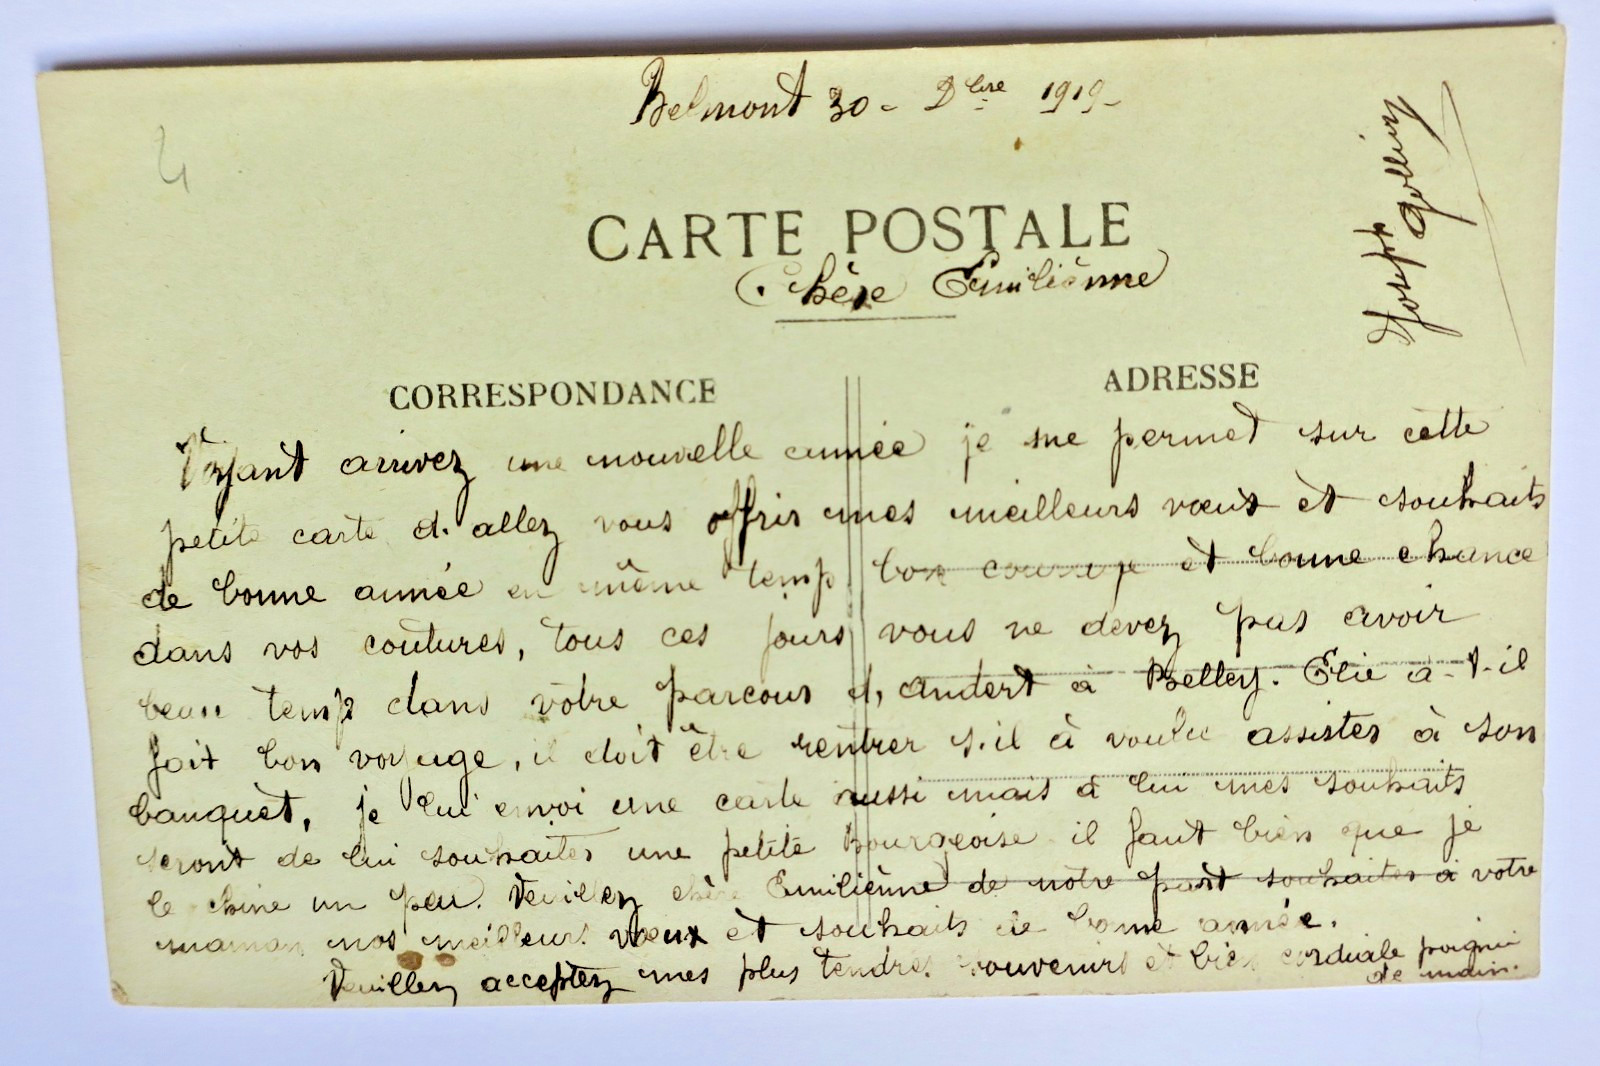 4
Belmont 30 - Dbre 1919 -
CARTE POSTALE
Chère Emiliènne
Joseph
CORRESPONDANCE
ADRESSE
Voyant arrivez une nouvelle année je me permet sur cètte
petite carte d'allez vous offrir mes meilleurs vœux èt souhaits
de bonne année en même temp bon courage èt bonne chance
dans vos coutures, tous ces jours vous ne devez pas avoir
beau temp dans vôtre parcour d, andert à Belley. Elie a-t-il
fait bon voyage, il doit être rentrer s'il à voulu assister à son
banquèt, je lui envoi une carte aussi mais à lui mes souhaits
seront de lui souhaiter une petite bourgeoise il faut bien que je
le chine un peu. Veuillez chère Emiliènne de nôtre part souhaiter à votre
maman nos meilleurs vœux èt souhaits de bonne année.
Veuillez acceptez mes plus tendres souvenirs et bien cordiale poignée
de main.